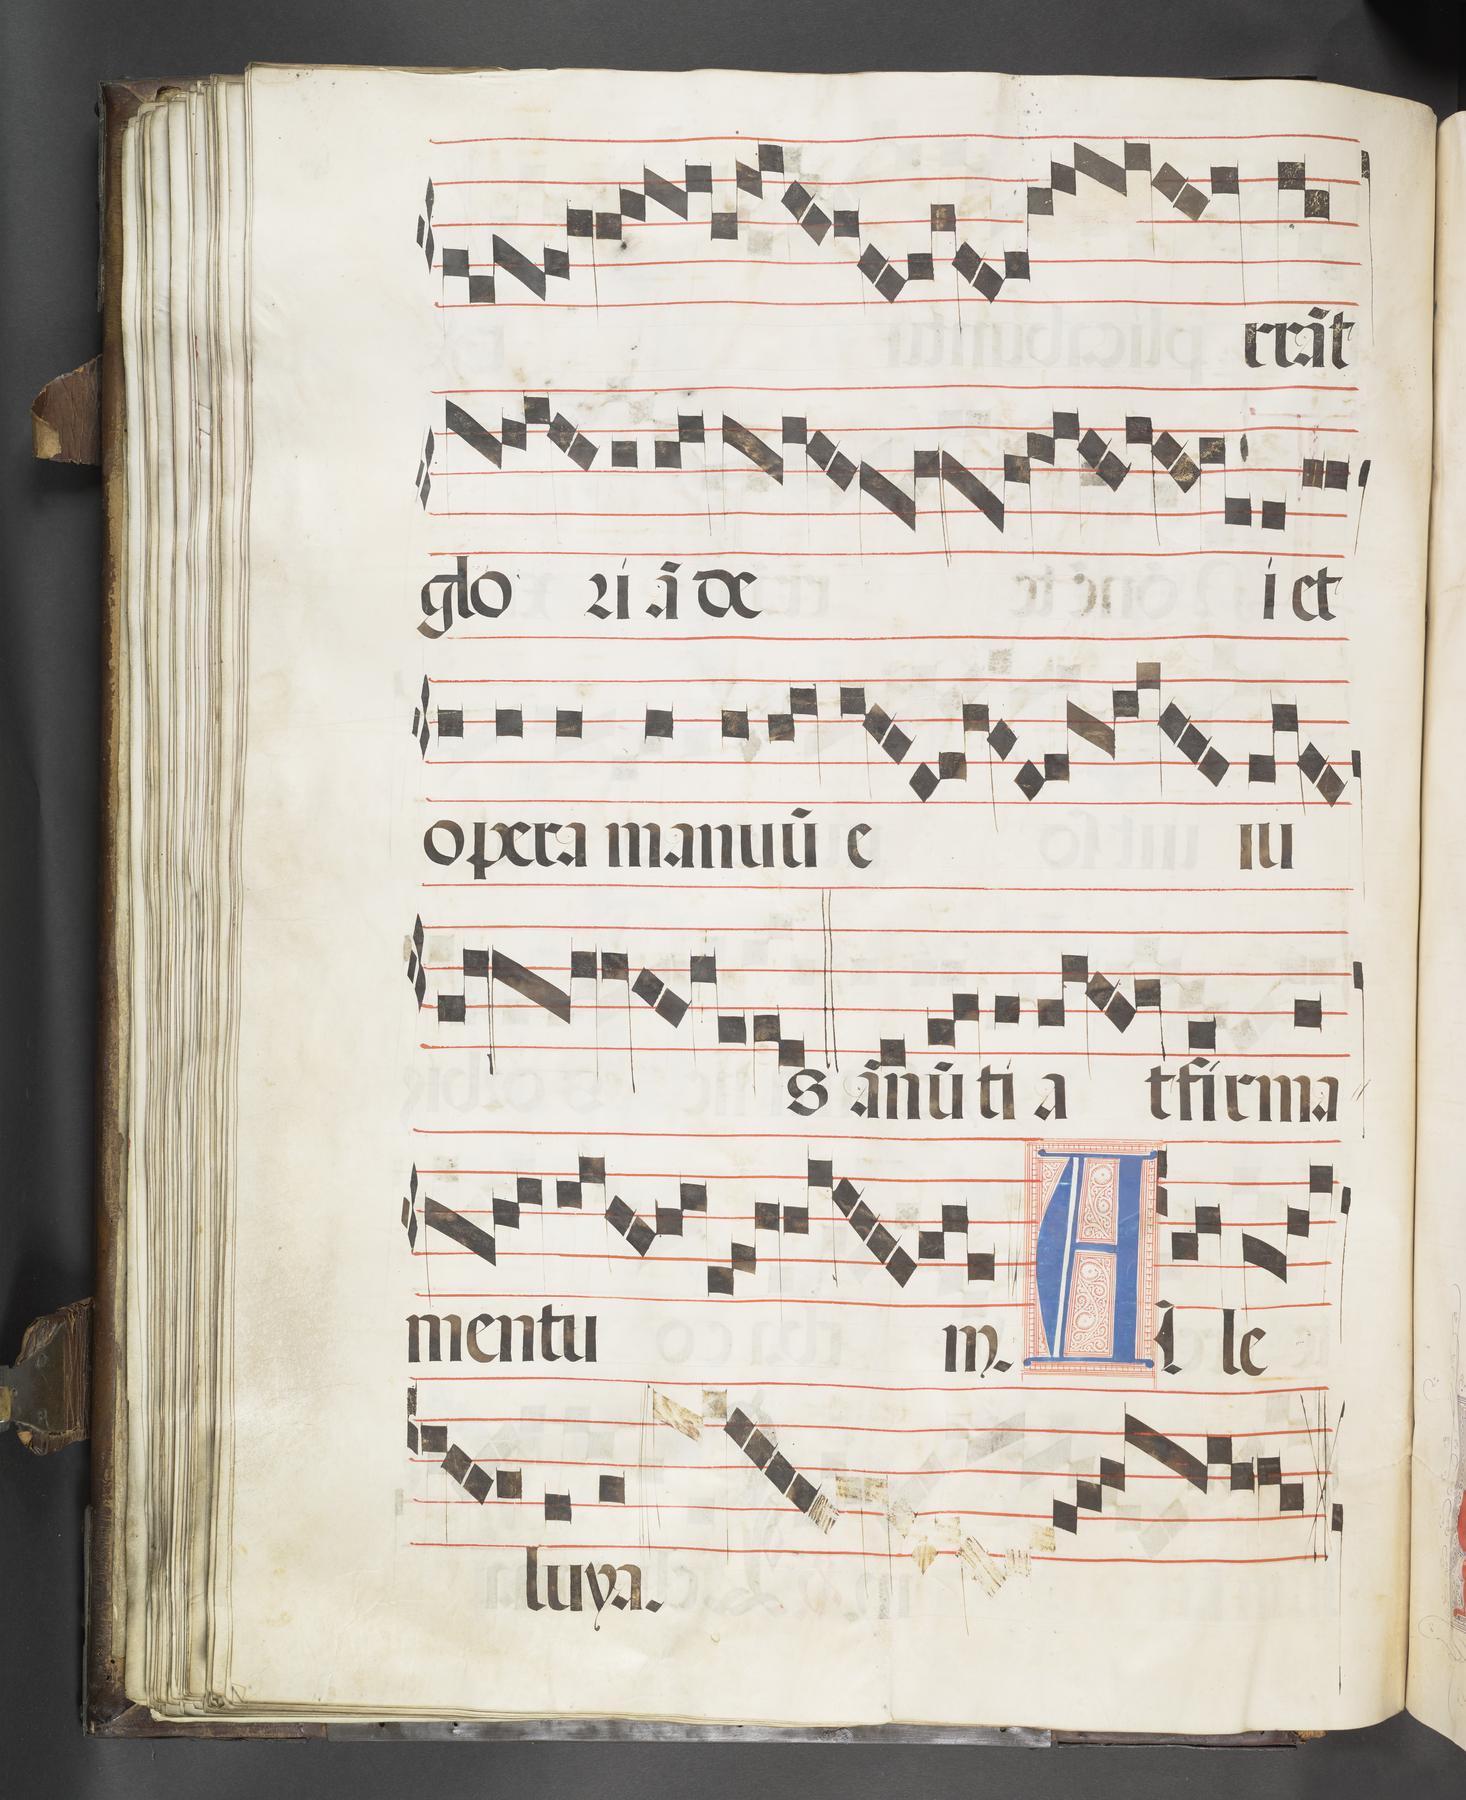 rrāt
glo ri ā de i et
opera manuū e iu
s ānūti a tfirma
mentu m. A l le
luya.